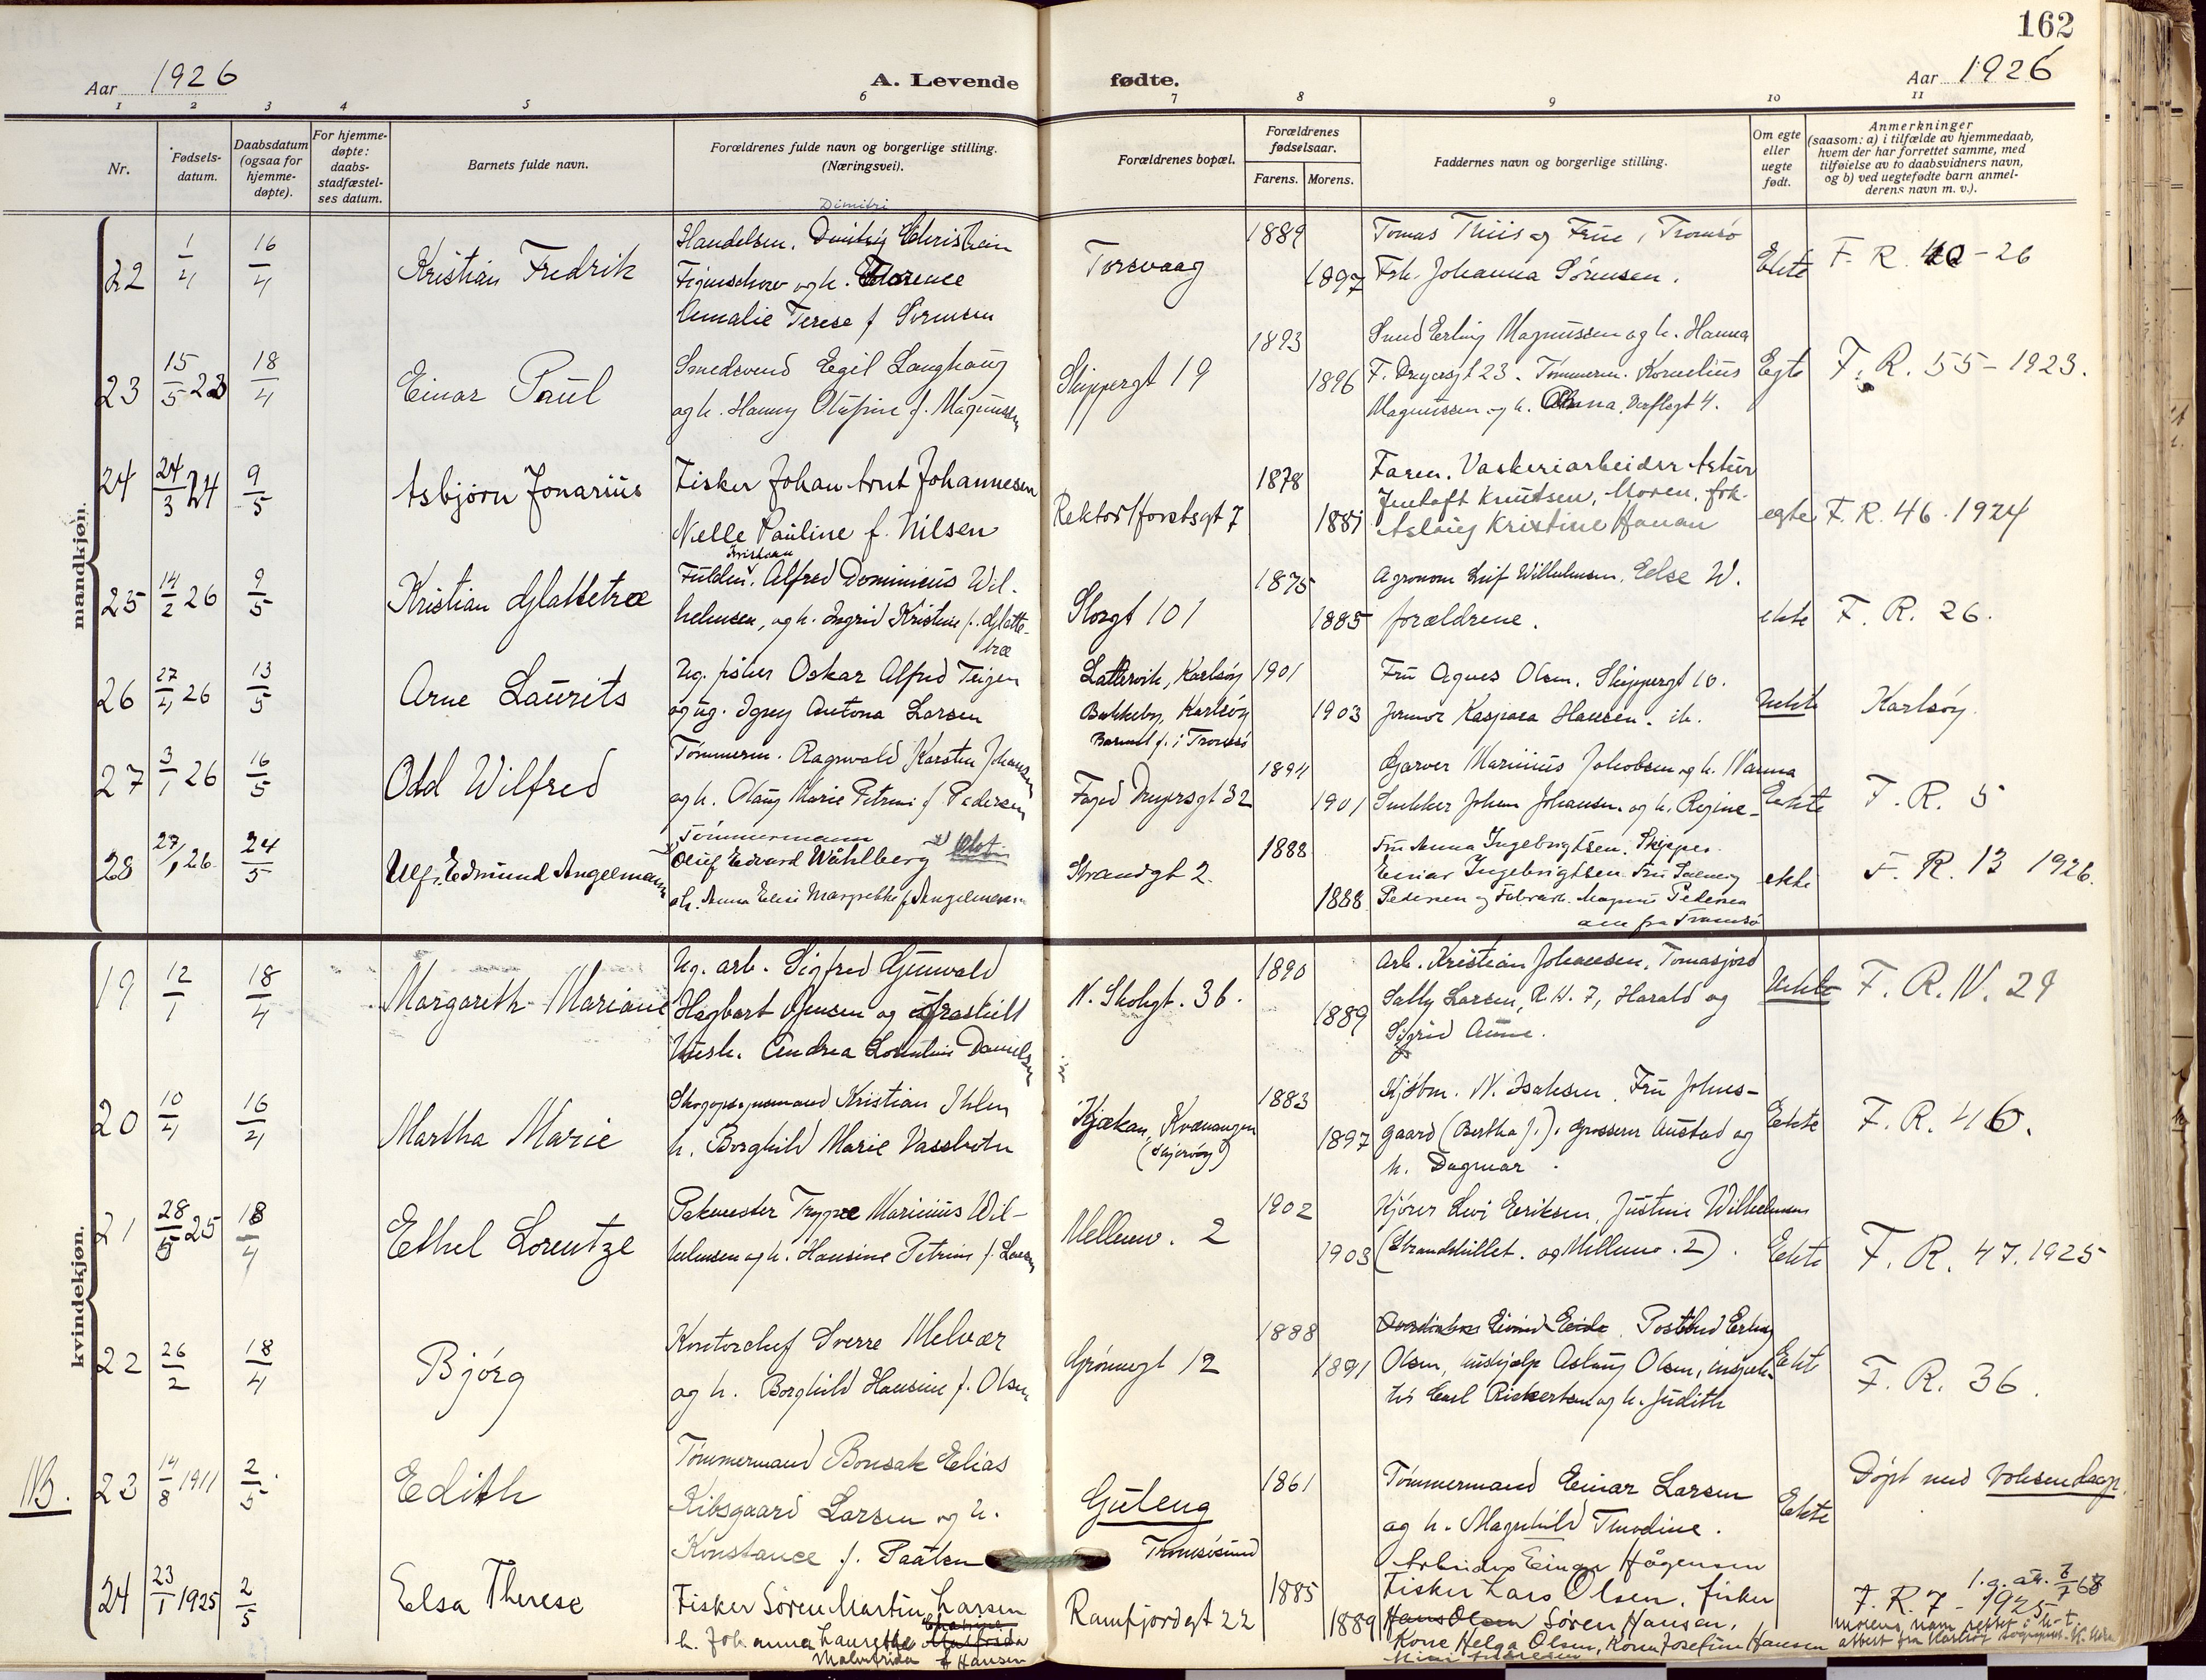 162
Aar 1926
A. Levende fødte.
Aar 1926
1 2 3 4 5 6 7 8 9 10 11
Nr.
Fødsels-
datum.
Daabsdatum
(ogsaa for
hjemme-
døpte).
For hjemme-
døpte:
daabs-
stadfæstel-
ses datum.
Barnets fulde navn.
Forældrenes fulde navn og borgerlige stilling.
(Næringsvei).
Forældrenes bopæl.
Forældrenes
fødselsaar.
Farens. Morens.
Faddernes navn og borgerlige stilling.
Om egte
eller
uegte
født.
Anmerkninger
(saasom: a) i tilfælde av hjemmedaab,
hvem der har forrettet samme, med
tilføielse av to daabsvidners navn,
og b) ved uegtefødte barn anmel-
derens navn m. v.).
mandkjøn.
22 1/4 16/4 Kristian Fredrik
Dimitri
Handelsm. Christian
og h. Florence
Amalie Terese f Sørensen
Torsvaag
1889 1897
Tomas Thiis og Frue, Tromsø
Frk. Johanna Sørensen.
Ekte
F. R. 40-26
23 15/5 23 18/4 Einar Paul
Smedsvend Egil Langhaug
og h. Hanny Olufine f. Magnussen
Skippergt 19
1893 1896
Smed Erling Magnussen og h. Hanna
F. Dreyersgt 23. Tømmerm. Kornelius
Magnussen og h. Anna, Verftsgt 4.
Egte
F. R. 55-1923.
24 24/3 24 9/5 Asbjørn Jonarius
Fisker Johan Arnt Johannesen
Nelle Pauline f. Nilsen
Rektor Horstsgt 7
1878 1881
Faren, Vaskeriarbeider Artur
Knutsen, Moren, frk.
Aslaug Kristine Hanan
egte
F. R. 46. 1924
25 14/2 26 9/5 Kristian Glattetræ
Kristian
Fuldm. Alfred Dominicus Wil-
helmsen, og h. Ingrid Kristine f. Glatte-
træ
Storgt 101
1875 1885
Agronom Leif Wilhelmsen, Else W.
forældrene.
ekte
F. R. 26.
26 27/4 26 13/5 Arne Laurits
Ug. fisker Oskar Alfred Teigen
og ug. Antona Larsen
Karlsøy
Karlsøy
Barnet f. i Tromsø
1901 1903
Fru Agnes Olsen, Skippergt 10.
Jormor Kaspara Hansen. ib.
Uekte
Karlsøy
27 3/1 26 16/5 Odd Wilfred
Tømmerm. Ragnvald Karsten Johansen
og h. Olaug Marie Petrine f Pedersen
Foged Dreyersgt 32
1894 1901
Garver Marinius Jakobsen og h. Nanna
Snekker Johan Johansen og h. Regine
Ekte
F. R. 5
28 27/1 26 24/5 Ulf Edmund Angelmann
Tømmermann
Oluf Edvard Wåhlberg
o h. Anna Elise Margrethe f Angelmann
Strandgt 2.
1888 1888
Fru Anna Ingebrigtsen. Skipper
Einar Ingebrigtsen. Fru Solveig
Pedersen og Fabrark. Magnus Pedersen
alle fra Tromsø
ekte
F. R. 13 1926.
kvindekjøn.
19 12/1 18/4 Margareth Mariane
Ug. arb. Sigfred Gunvald
Hagbart Jensen og fraskilt
Andrea Lorentine Danielsen
N. Skolegt. 36.
1890 1889
Arb. Kristian Johansen, Tomasjord
Sally Larsen, R. H. 7, Harald og
Sigrid Aune.
Uekte
F. R. N. 24
20 10/4 16/4 Martha Marie
Kristian Ihlen
h. Borghild Marie Vassbotn
Kjækan, Kvænangen
(Skjervøy)
1883 1897
Kjøbm. N. Isaksen, Fru Johns-
gaard (Bertha J.). Grosserer Austad og
h. Dagmar.
Ekte
F. R. 46.
21 28/5 25 18/4 Ethel Lorentze
Pakmester Trygve Marinius Wil-
helmsen og h. Hansine Petrine f. Larsen
Mellemv. 2
1902 1903
Kjører Levi Eriksen, Justine Wilhelmsen
(Strandskillet. og Mellemv. 2).
Ekte
F. R. 47. 1925
22 26/2 18/4 Bjørg
Kontorchef Sverre Melvær
og h. Borghild Hansine f. Olsen
Grønnegt 12
1888 1891
Eivind Eide, Postbud Erling
Olsen, Aslaug Olsen, inspek-
tør Carl Rickertsen og h. Judith
Ekte
F. R. 36.
NB. 23 14/8 1911 2/5 Edith
Tømmermand Bonsak Elias
Ribsgaard Larsen og h.
Konstance f. Paaten
Guleng
Tromsøsund
1861
Tømmermand Einar Larsen
og h. Magnhild Thodine.
Arbeider Einar Hågensen
Ekte
Døpt med voksendaap
24 23/1 1925 2/5 Elsa Therese
Fisker Søren Martin Larsen
h. Johanna Laurethe
Malufrida f Hansen
Ramfjordgt 22
1885 1889
Fisker Lars Olsen, fisker
Hans Olsen Søren Hansen,
Kone Helga Olsen, Kone Josefine Hansen
F. R. 7 - 1925
morens navn rettet i h. t.
attest fra Karlsøy